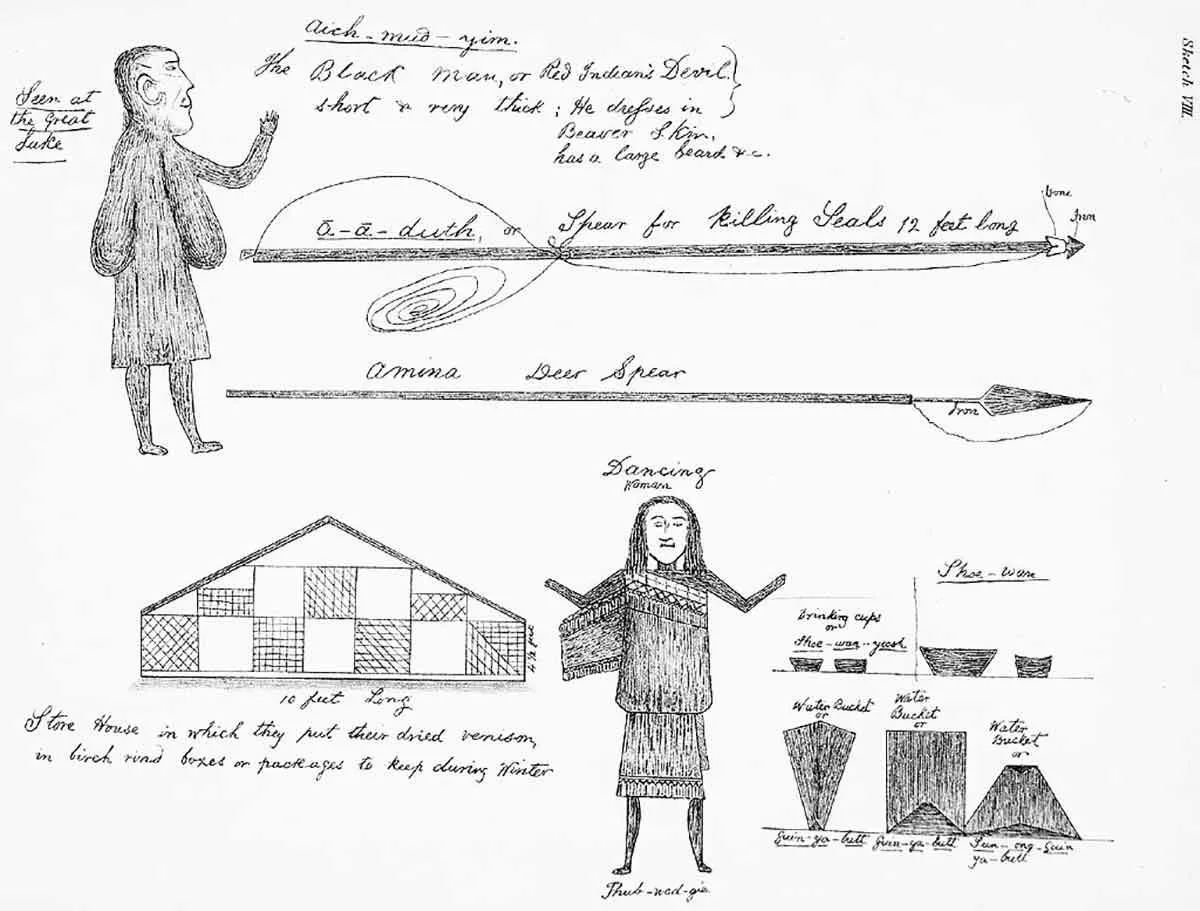 Sketch VIII.
Aich-mud-yim.
The Black Man, or Red Indian's Devil.
short & very thick; He dresses in
Beaver Skin,
has a large beard &c.
Seen at
the Great
Lake
bone
Iron
ō-ā-duth, or Spear for Killing Seals 12 feet long
Amina Deer Spear
Iron
Dancing
Woman
4½ feet
10 feet Long
Store House in which they put their dried venison,
in birch rind boxes or packages to keep during Winter
Thub-wed-gie
Shoe-wan
Drinking cups
or
Shoe-wan-yeesh
Water Bucket
or
Water
Bucket
or
Water
Bucket
or
Guin-ya-butt
Guin-ya-butt
Sun-ong-guin
ya-butt